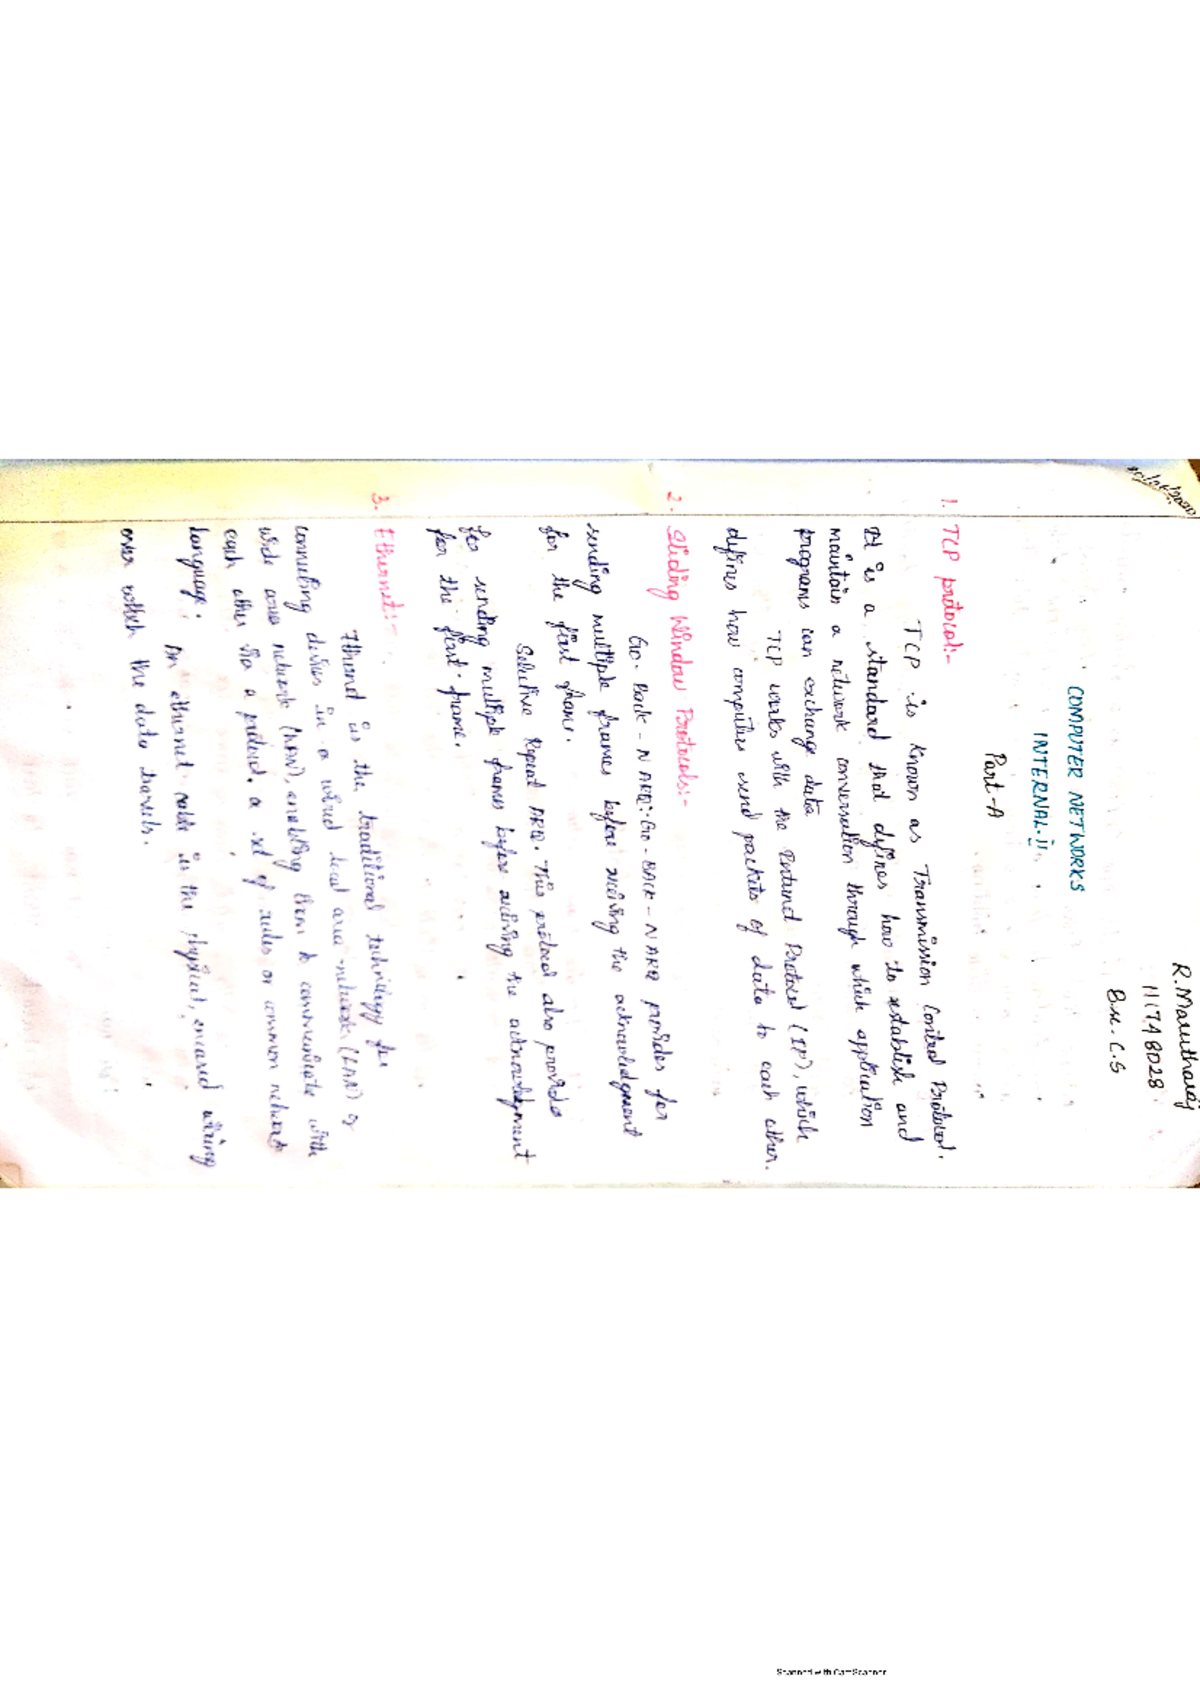 R. Mautharaj
1117A8028
B.sc. C.S
COMPUTER NETWORKS
INTERNAL-ii
Part-A
1. TCP protocol:-
TCP is known as Transmission Control Protocol.
It is a standard that defines how to establish and
maintain a network conversation through which application
programs can exchange data
TCP works with the Protocol (IP), which
defines how computers send packets of data to each other.
2. Sliding Window Protocols:-
Go-Back-N ARQ: Go-Back-N ARQ provides for
sending multiple frames before receiving the acknowledgment
for the first frame.
Selective Repeat ARQ. This protocol also provide
for sending multiple frames before receiving the acknowledgment
for the first frame.
3. Ethernet:-
is the traditional technology for
connecting devices in a wired local area network (LAN) or
wide area network (WAN), enabling them to communicate with
each other via a protocol. a set of rules or common network
language. An ethernet cable is the physical, encased wiring
over which the data travels.
Scanned with CamScanner